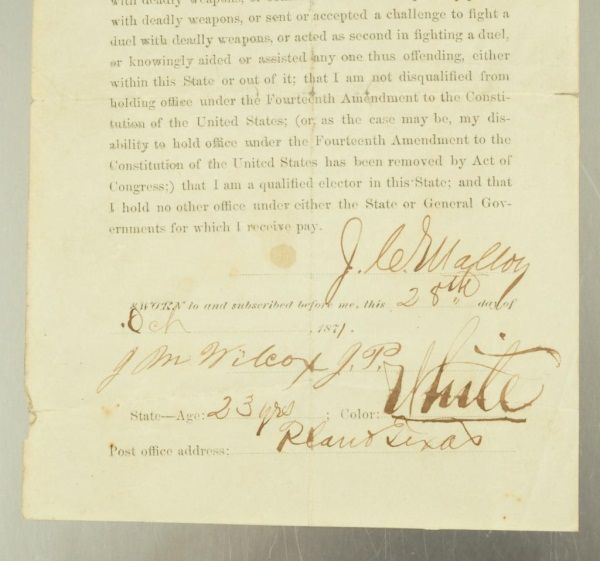 with deadly weapons, or
with deadly weapons, or sent or accepted a challenge to fight a
duel with deadly weapons, or acted as second in fighting a duel,
or knowingly aided or assisted any one thus offending, either
within this State or out of it; that I am not disqualified from
holding office under the Fourteenth Amendment to the Consti-
tution of the United States; (or, as the case may be, my dis-
ability to hold office under the Fourteenth Amendment to the
Constitution of the United States has been removed by Act of
Congress;) that I am a qualified elector in this State; and that
I hold no other office under either the State or General Gov-
ernments for which I receive pay.
Malloy
SWORN to and subscribed before me, this 28th day of
Oct , 1871.
J M Wilcox J.P.
State—Age: 23 yrs ; Color: White
Post office address: Plano Texas